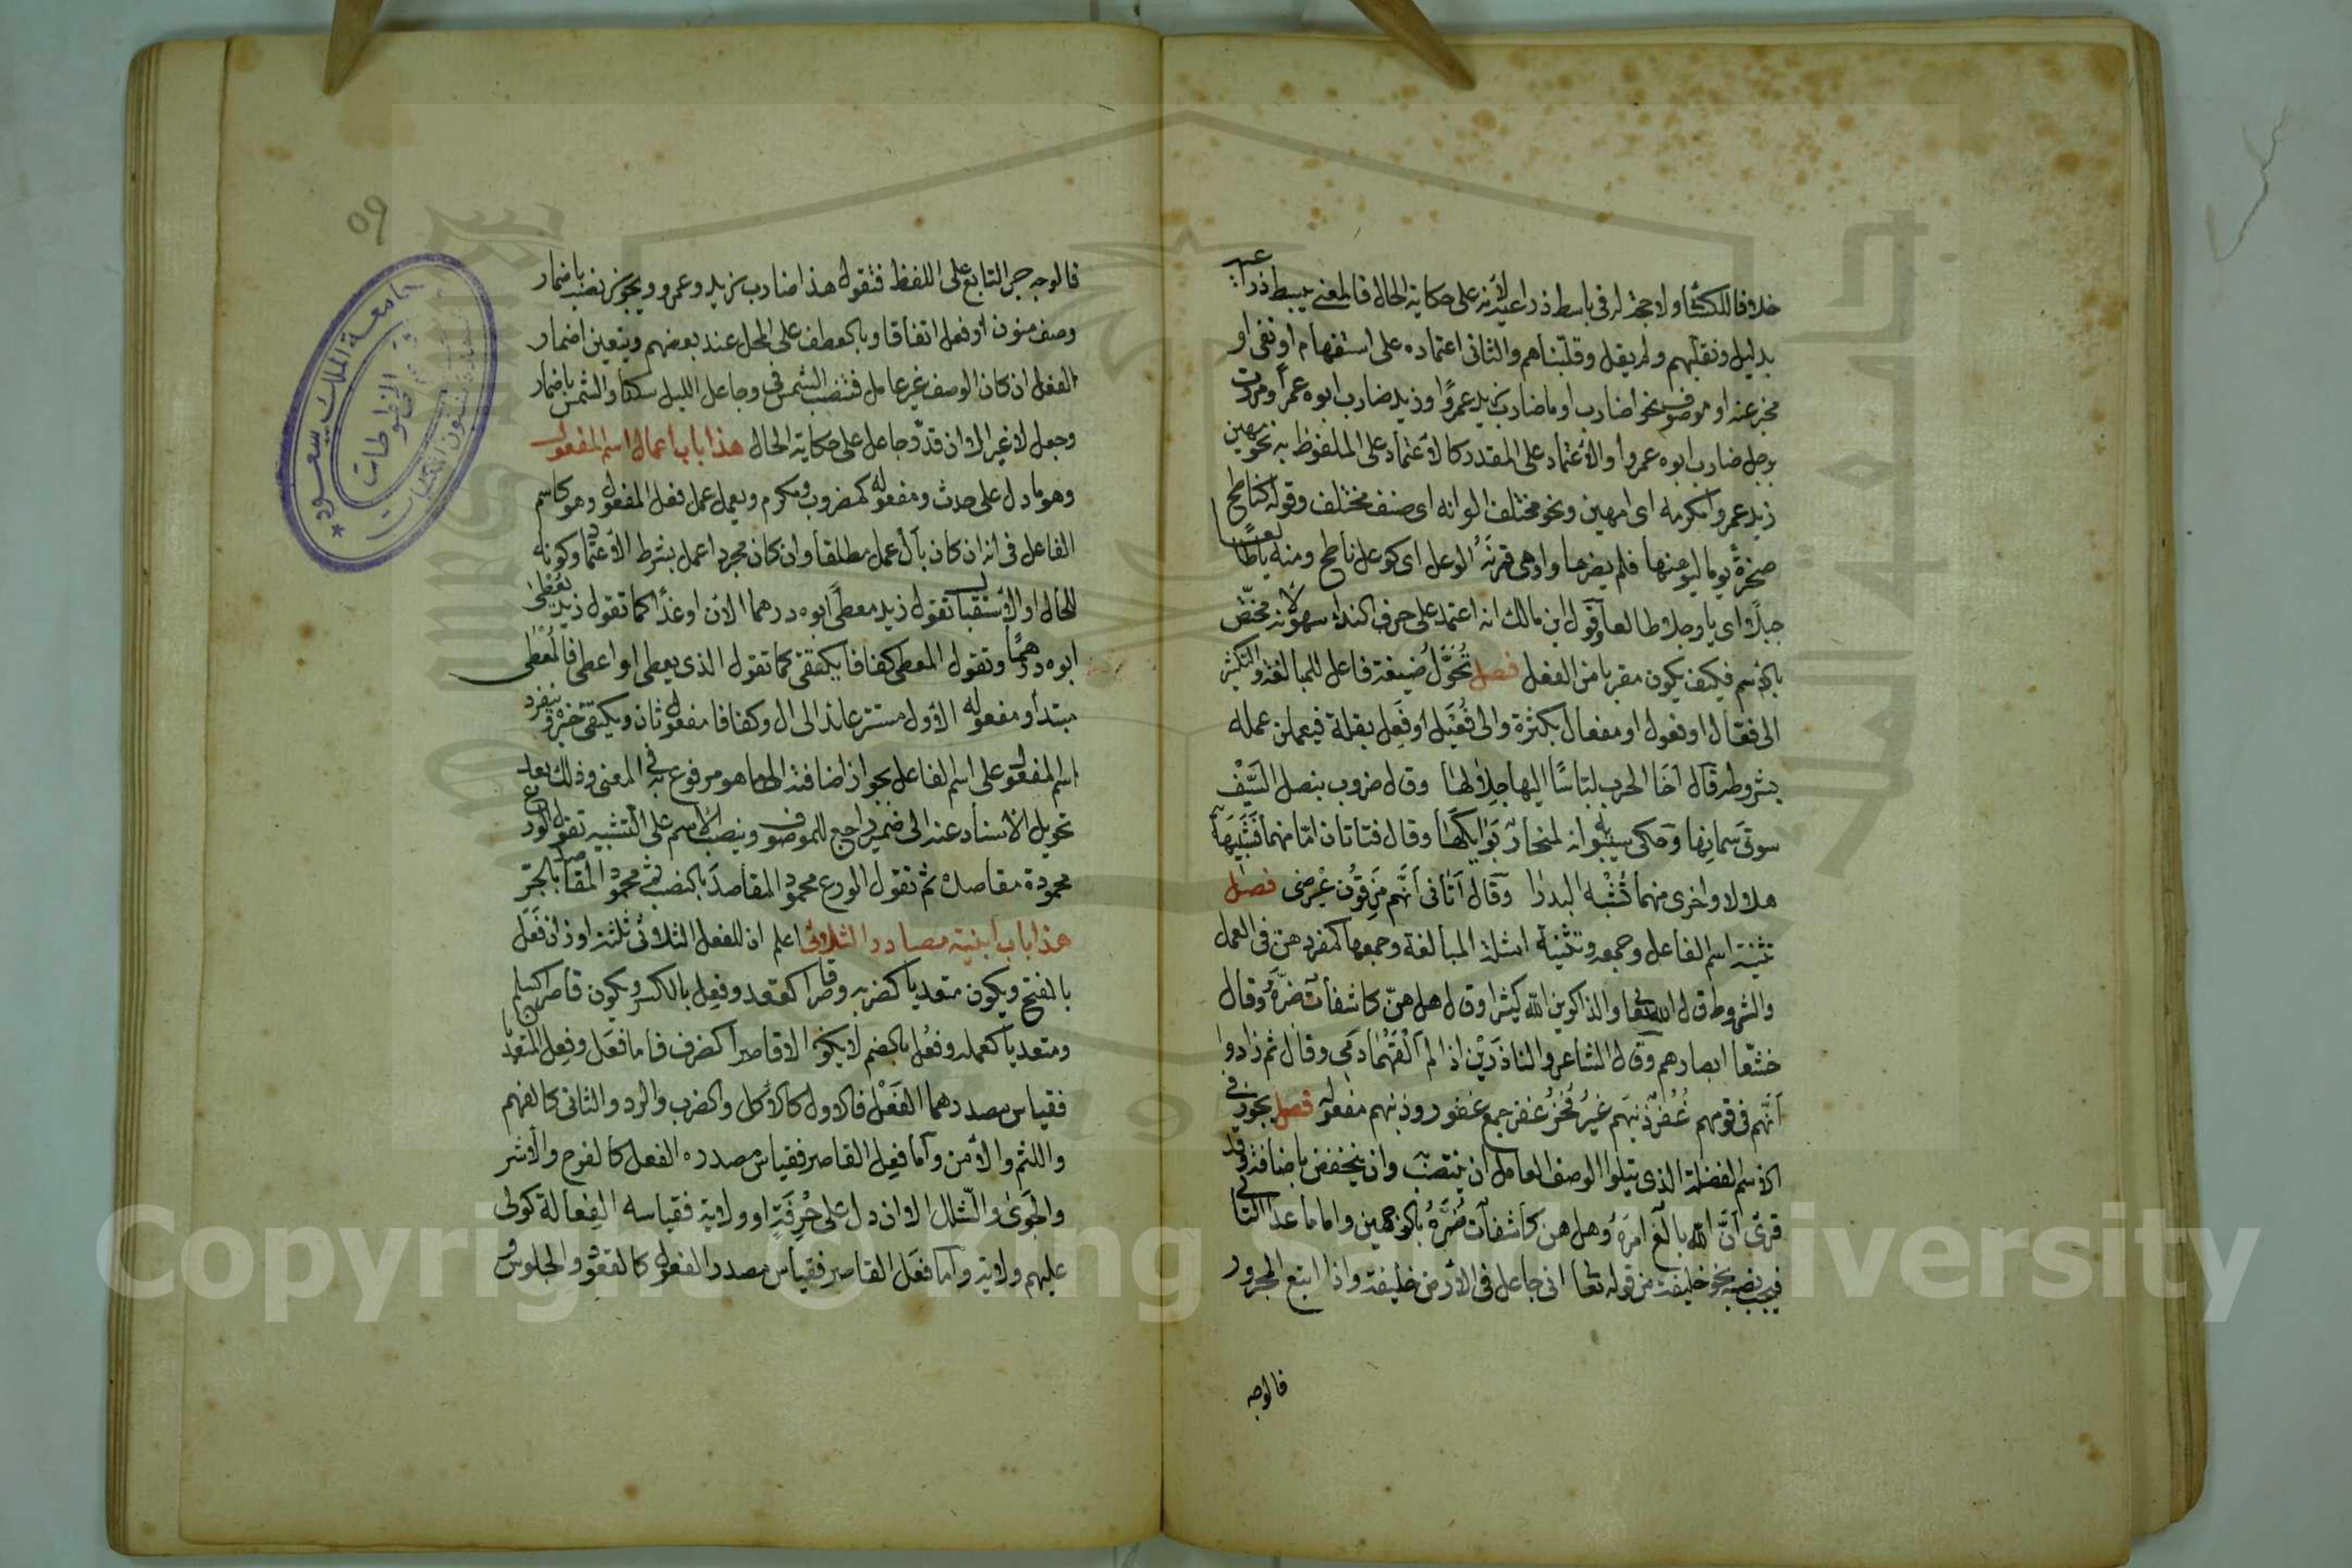 خلافا للكسائى ولا حجة له فى باسط ذراعيه لانه على حكاية الحال فالمعنى يبسط ذراعيه
بدليل ونقلبهم ولم يقل وقلبناهم والثانى اعتماده على استفهام او نفى او
مخبر عنه او موصوف نحو اضارب او ما ضارب زيد عمرًوا وزيد ضارب ابوه عمرًا ومررت
برجل ضارب ابوه عمروا والأعتماد على المقدر كالأعتماد على الملفوظ به نحو مهين
زيد عمروا مكرمه اى امهين ونحو مختلف الوانه اى صنف مختلف وقوله كناطح
صخرةً يوما ليوهنها فلم يضرها واوهى قرنَهُ الوعل اى كوعل ناطح ومنه ياطالعًا
جبلًا اى يا رجلا طالعا وقول ابن مالك انه اعتمد على حرف الندآء سهو لانه مختصّ
بالأسم فكيف يكون مقربا من الفعل فصل تُحَوَّلُ صيغة فاعل للمبالغة والتكثير
الى فعّال او فعول او مفعال بكثرة والى فَعِيل او فَعِل بقلة فيعمل عمله
بشروطه قال اَخَا الحرب لبّاسًا اليها جِلالها وقال ضروب بنصل السَّيْف
سوقَ سمانِها وحكى سيبويه انه لمنحارٌ بَوَائِكَهَا وقال فتاتان امّا منهما فَشَبِيهَةٌ
هلالا واخرى منهما تُشْبه البدرا وقال اَتَانى اَنَّهم مَزِقُون عِرضى فصل
تثنية اسم الفاعل وجمعه وتثنية امثلة المبالغة وجمعها كمفردهن فى العمل
والشروط قال الله تعا والذاكرين الله كثيرا وقال هل هنّ كاشفاتٌ ضرَّهُ وقال
خشّعا ابصارهم وقال الشاعر والناذرَيْن اذا لم اَلْقَهُمَا دَمِى وقال ثم زادوا
اَنَّهم فى قومهم غُفُرٌ ذنبَهم غيرُ فُخُرُ غفر جمع غفور وذنبهم مفعوله فصل يجوز فى
الأسم الفضلة الذى يتلوا الوصف العامل ان ينتصب وان ينخفض باضافته وقد
قرئ اَنَّ الله بالغ امرَهُ وهل هن كاشفات ضُرَّهُ بالوجهين واما ما عدا التالى
فيجب نصبه نحو خليفة من قوله تعا انى جاعل فى الأرض خليفة واذا اتبع المجرور
فالوجه
٥٩
فالوجه جر التابع على اللفظ فتقول هذا ضارب زيد وعمرو ويجوز نصبه باضمار
وصف منون او فعل اتفاقا وبالعطف على المحل عند بعضهم ويتعين اضمار
الفعل ان كان الوصف غير عامل فتنصب الشمس فى وجاعل الليل سكنًا والشمس باضمار
وجعل لا غير الا ان قدّر جاعل على حكاية الحال هذا باب اعمال اسم المفعول
وهو ما دل على حدث ومفعوله كمضروب ومكرم ويعمل عمل فعل المفعول وهو كاسم
الفاعل فى انه ان كان بأل عمل مطلقا وان كان مجردا عمل بشرط الأعتماد وكونه
للحال او الأستقبال تقول زيد معطًى ابوه درهما الأن او غدًا كما تقول زيد يُعْطَى
ابوه درهمًا وتقول المعطى كفافا يكتفى كما تقول الذى يعطى او اعطى فالمُعْطى
مبتدأ ومفعوله الأول مستتر عائد الى ال وكفافا مفعول ثان ويكتفى خبره وينفرد
اسم المفعول على اسم الفاعل بجواز اضافته الى ما هو مرفوع به فى المعنى وذلك بعد
تحويل الأسناد عنه الى ضمير راجع للموصوف وينصب الاسم على التشبيه تقول الورع
محمودة مقاصده ثم تقول الورع محمود المقاصدَ بالنصب ثم محمود المقاصد بالجرّ
هذا باب ابنية مصادر الثلاثى اعلم ان للفعل الثلاثى ثلثة اوزان فَعَل
بالفتح ويكون متعديا كضربه وقاصرا كقعد وفَعِل بالكسر ويكون قاصرا كسلم
ومتعديا كعمله وفعُل بالضم لا يكون الا قاصرا كضرف فاما فعَل وفعِل المتعديان
فقياس مصدرهما الفَعْل فالاول كالأكل والضرب والرد والثانى كالفهم
واللثم والأمن وأما فعِل القاصر فقياس مصدره الفعل كالفرح والأشر
والجَوَى والشّلل الا ان دل على حُرِفَةٍ او ولاية فقياسه الفِعالة كولى
عليهم ولاية وأما فعَل القاصر فقياس مصدره الفعول كالقعود والجلوس و
جامعة الملك سعود
المخطوطات
Copyright © King Saud University